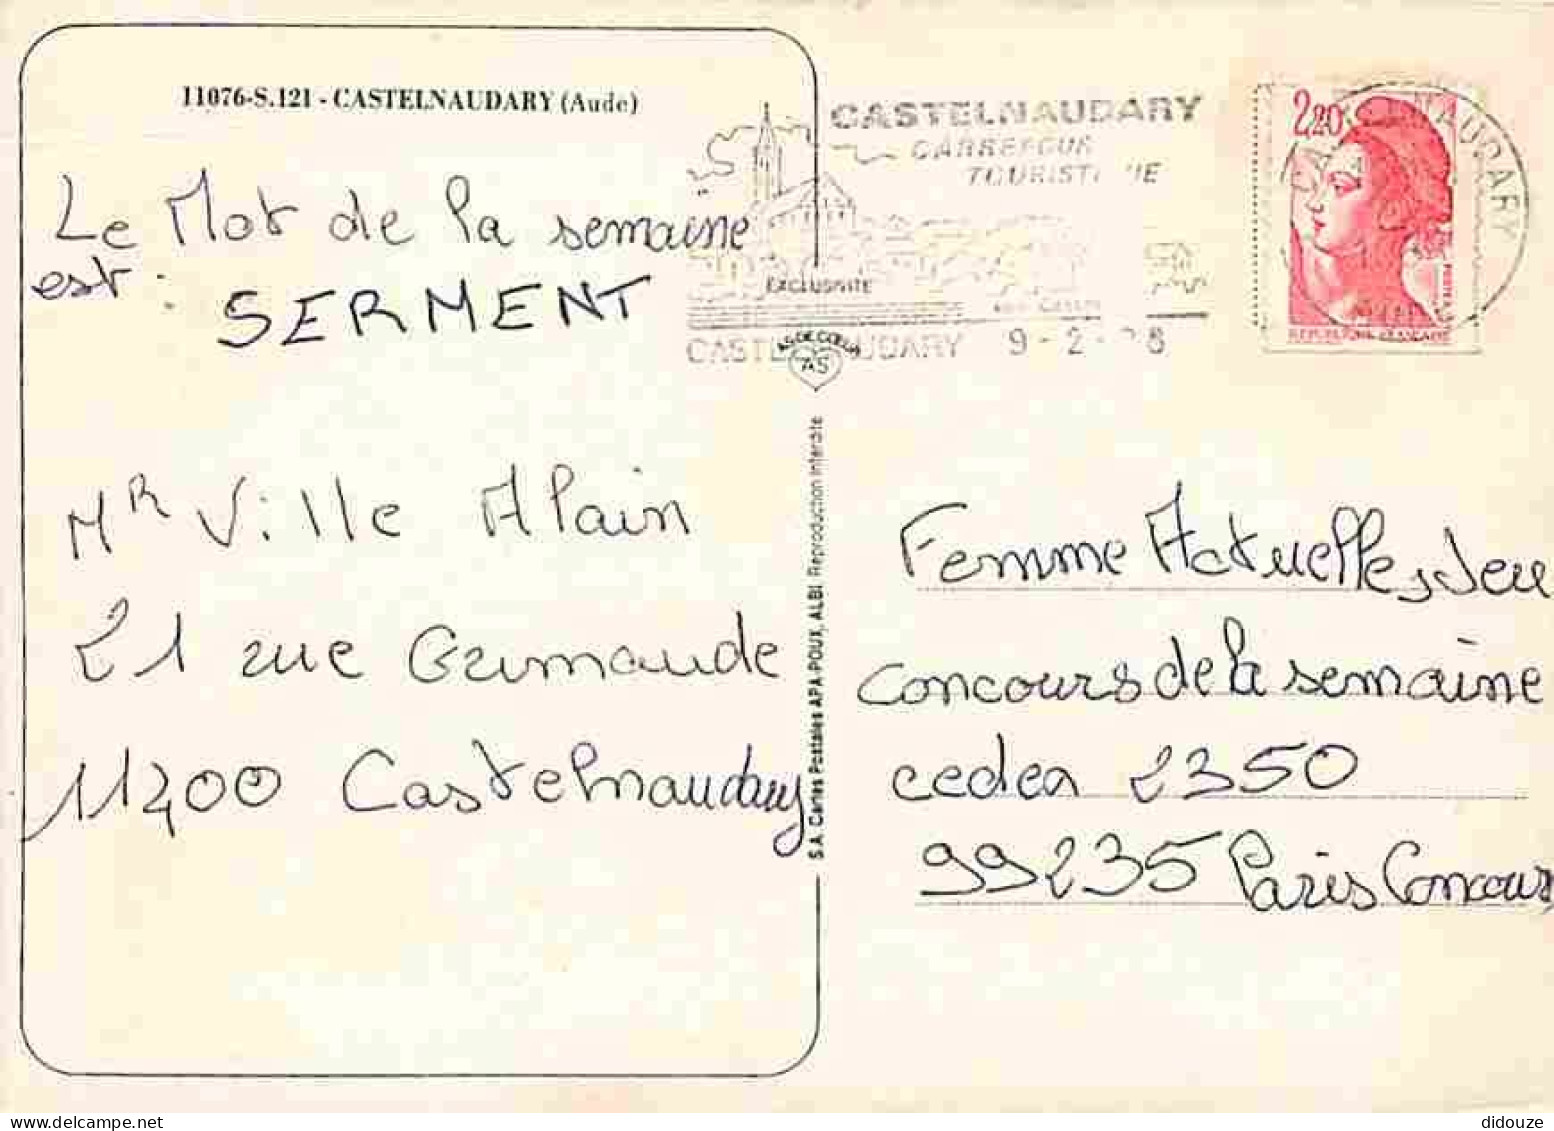 11076-S.121 - CASTELNAUDARY (Aude)
Le Mot de la semaine
est :
SERMENT
Mr Ville Alain
21 rue Grimaude
11400 Castelnaudary
CASTELNAUDARY
CARREFOUR
EXCLUSIVITE
CASTELNAUDARY 9-2-
AS DE CŒUR
AS
S.A. Cartes Postales APA-POUX, ALBI Reproduction Interdite
2,20
REPUBLIQUE FRANÇAISE
Femme Actuelle, Jeu
Concours de la semaine
cedex 2350
99235 Paris Concours
didouze